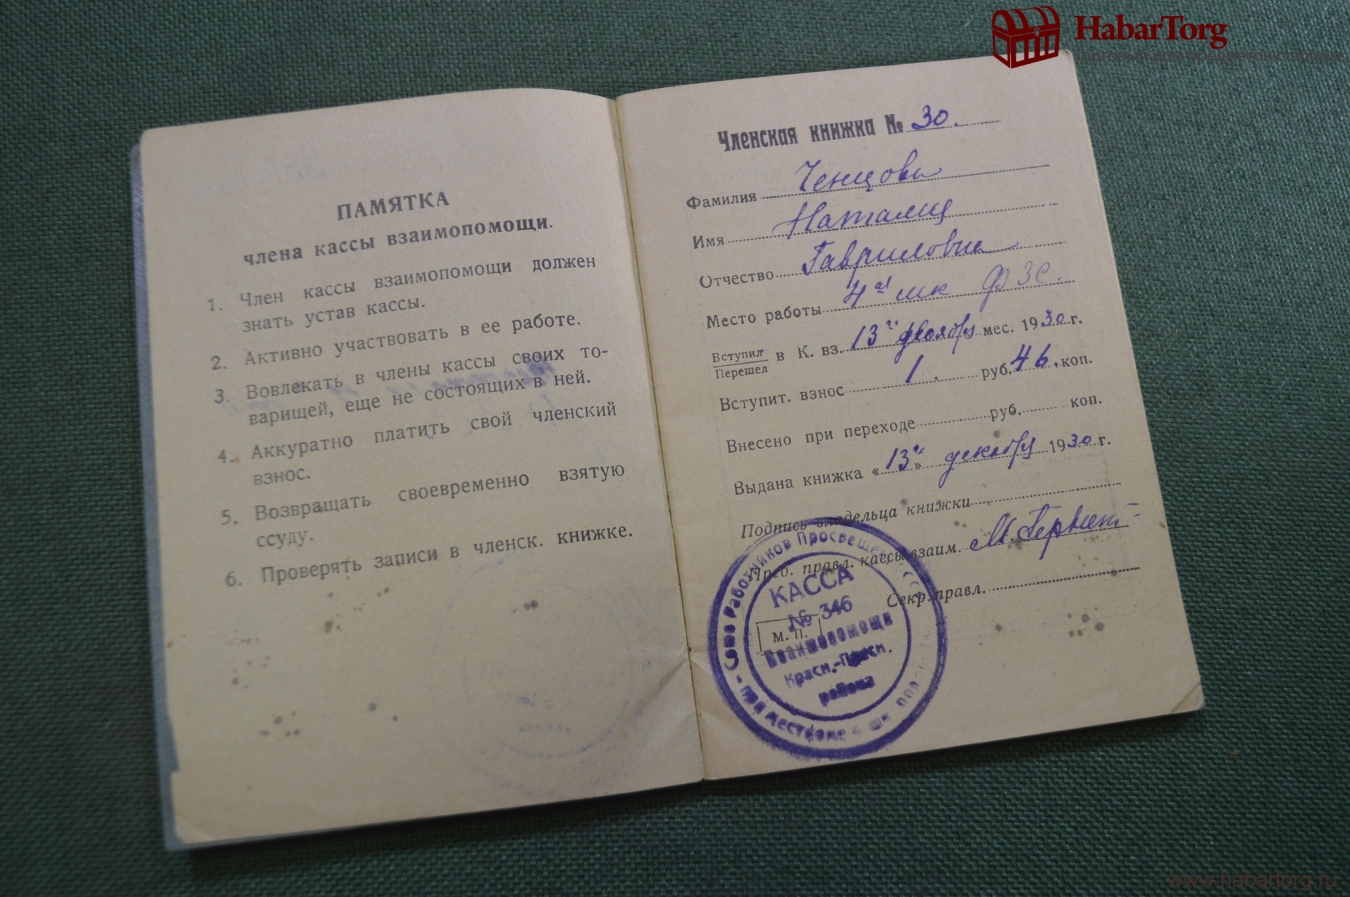 HabarTorg
ПАМЯТКА
члена кассы взаимопомощи.
1. Член кассы взаимопомощи должен
знать устав кассы.
2. Активно участвовать в ее работе.
3. Вовлекать в члены кассы своих то-
варищей, еще не состоящих в ней.
4. Аккуратно платить свой членский
взнос.
5. Возвращать своевременно взятую
ссуду.
6. Проверять записи в членск. книжке.
Членская книжка № 30.
Фамилия Ченцова
Имя Наталия
Отчество Гавриловна
Место работы 4ая шк ФЗС.
Вступил
Перешел в К. вз. 13го мес. 1930 г.
Вступит. взнос 1. руб. 46. коп.
Внесено при переходе руб. коп.
Выдана книжка «13го» декабря 1930 г.
Подпись владельца книжки
Пред. правл. кассы взаим.
Секр. правл.
М. П.
Союз Работников Просвещен
при месткоме 4 шк.
КАССА
№ 346
Взаимопомощи
Красн.-Пресн.
района
www.habartorg.ru